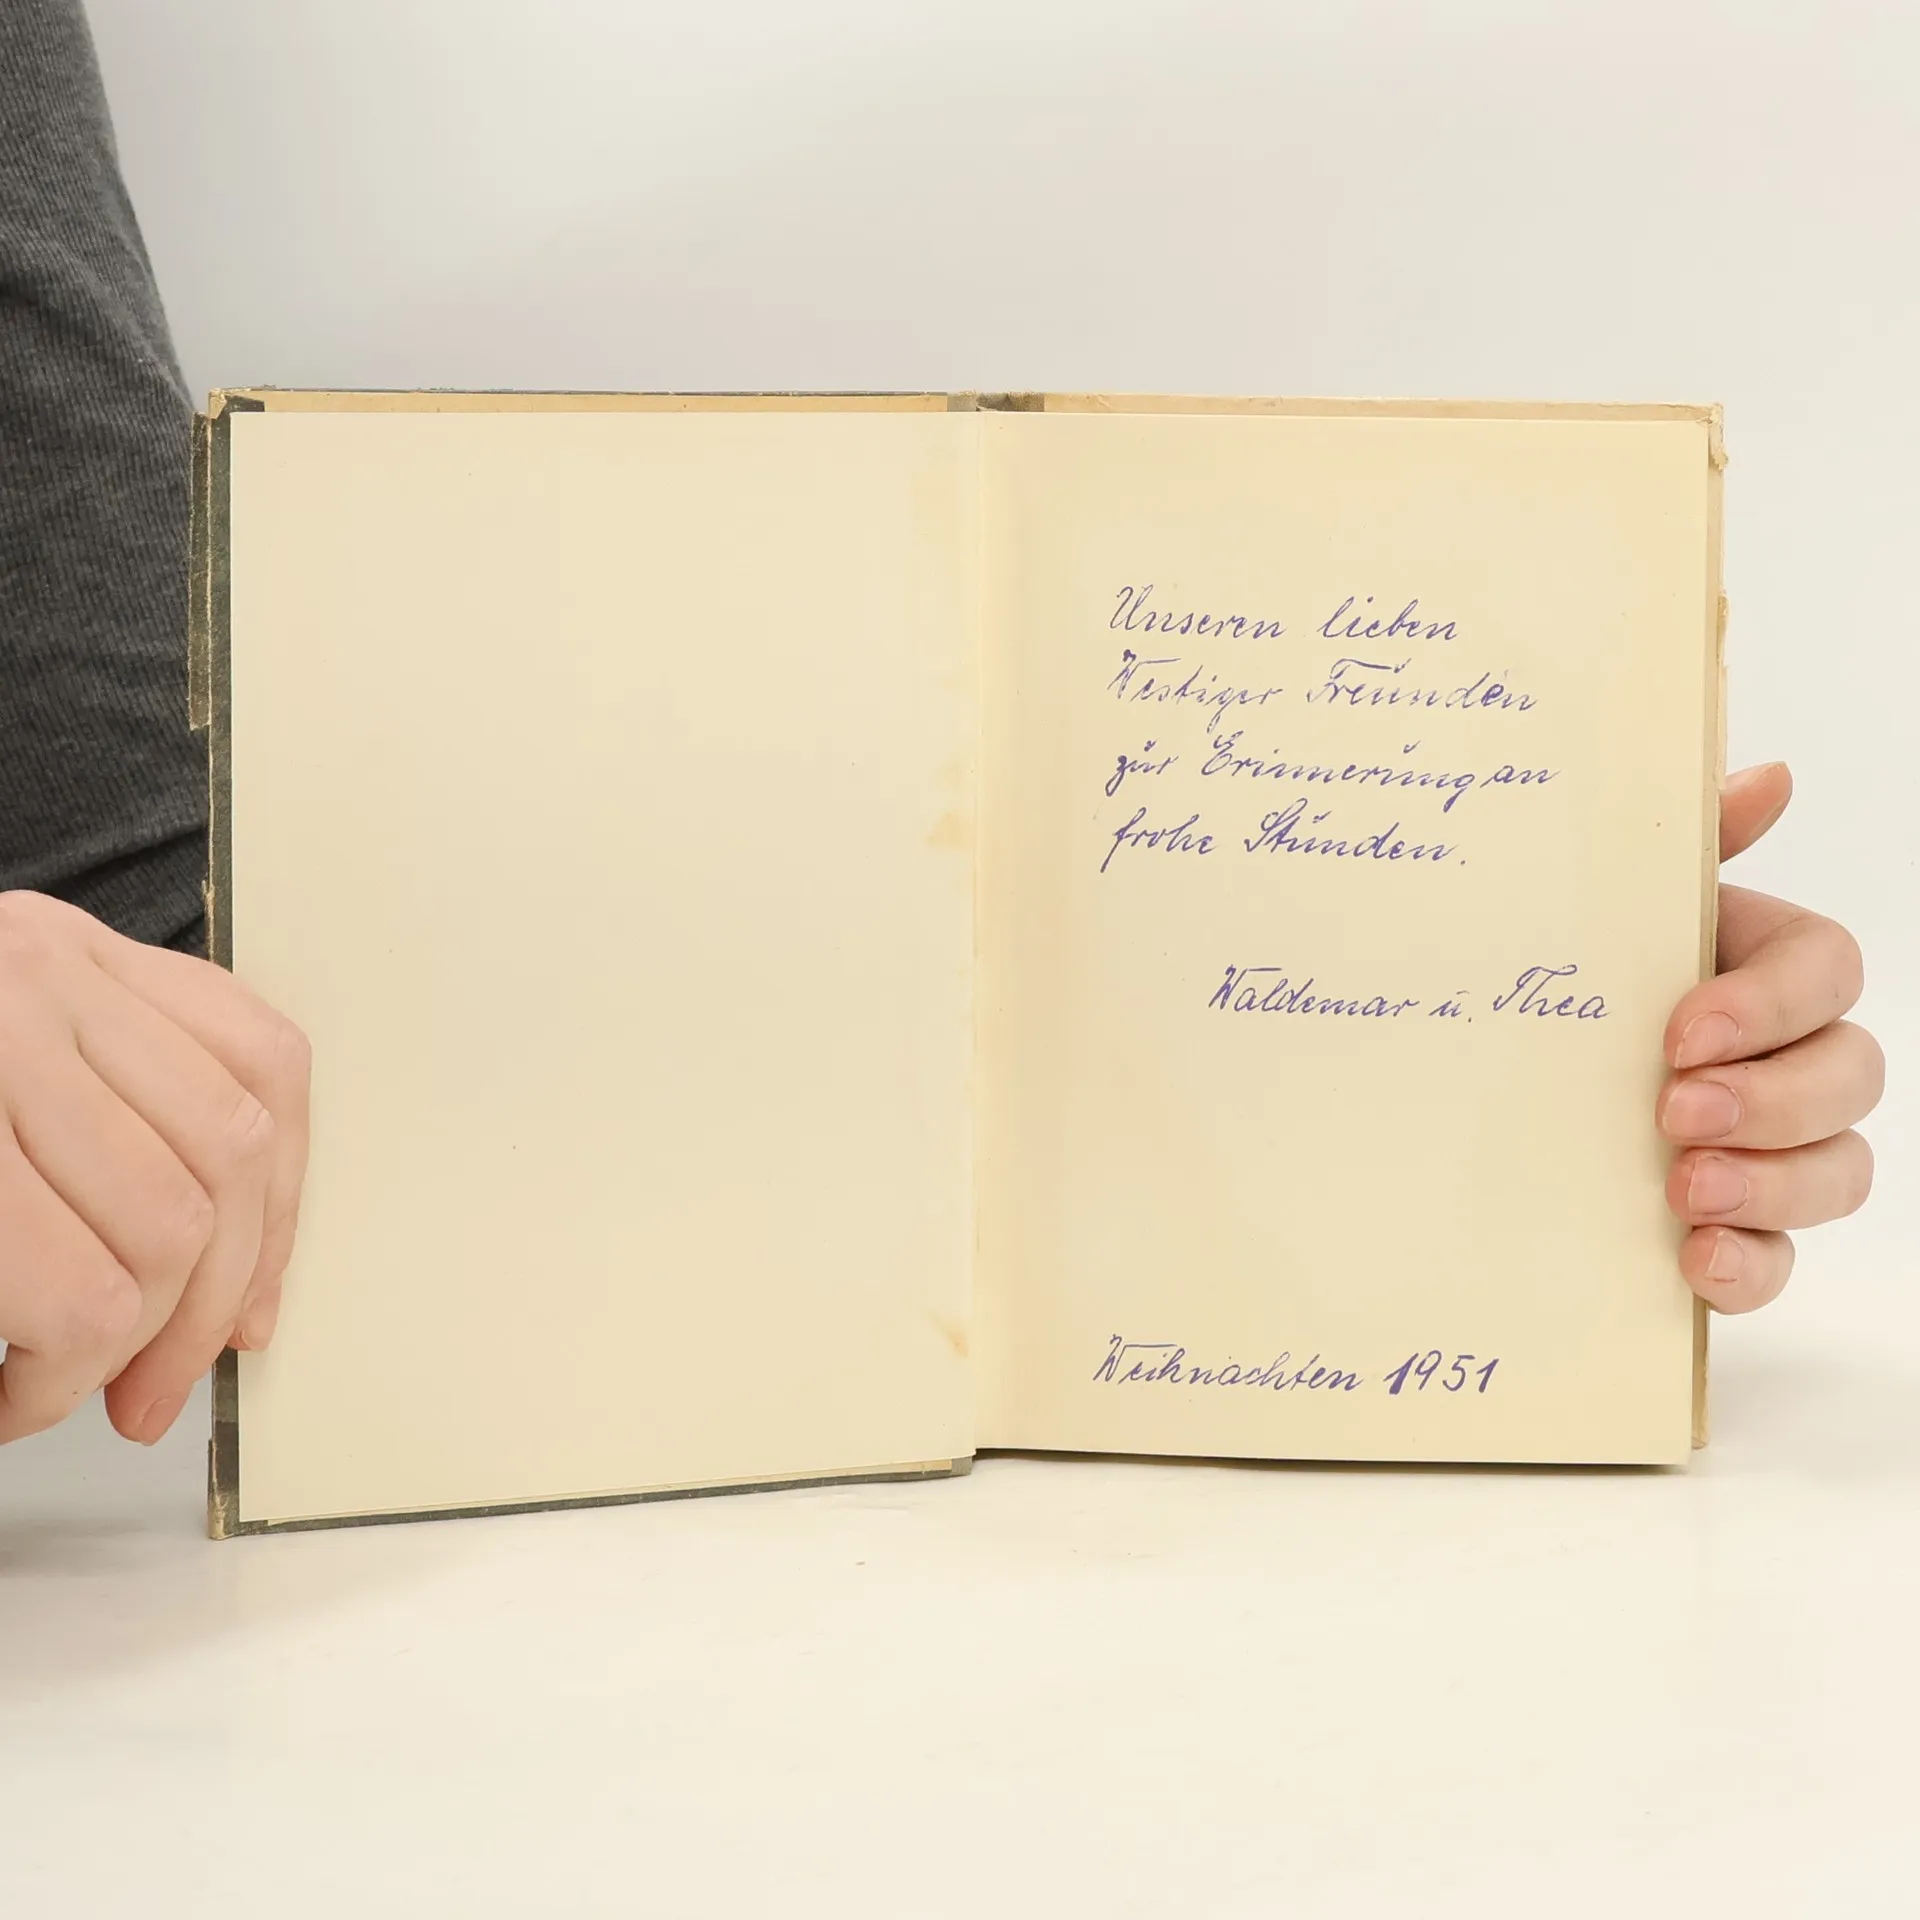 Unseren lieben
Westiger Freunden
zur Erinnerung an
frohe Stunden.
Waldemar u. Thea
Weihnachten 1951